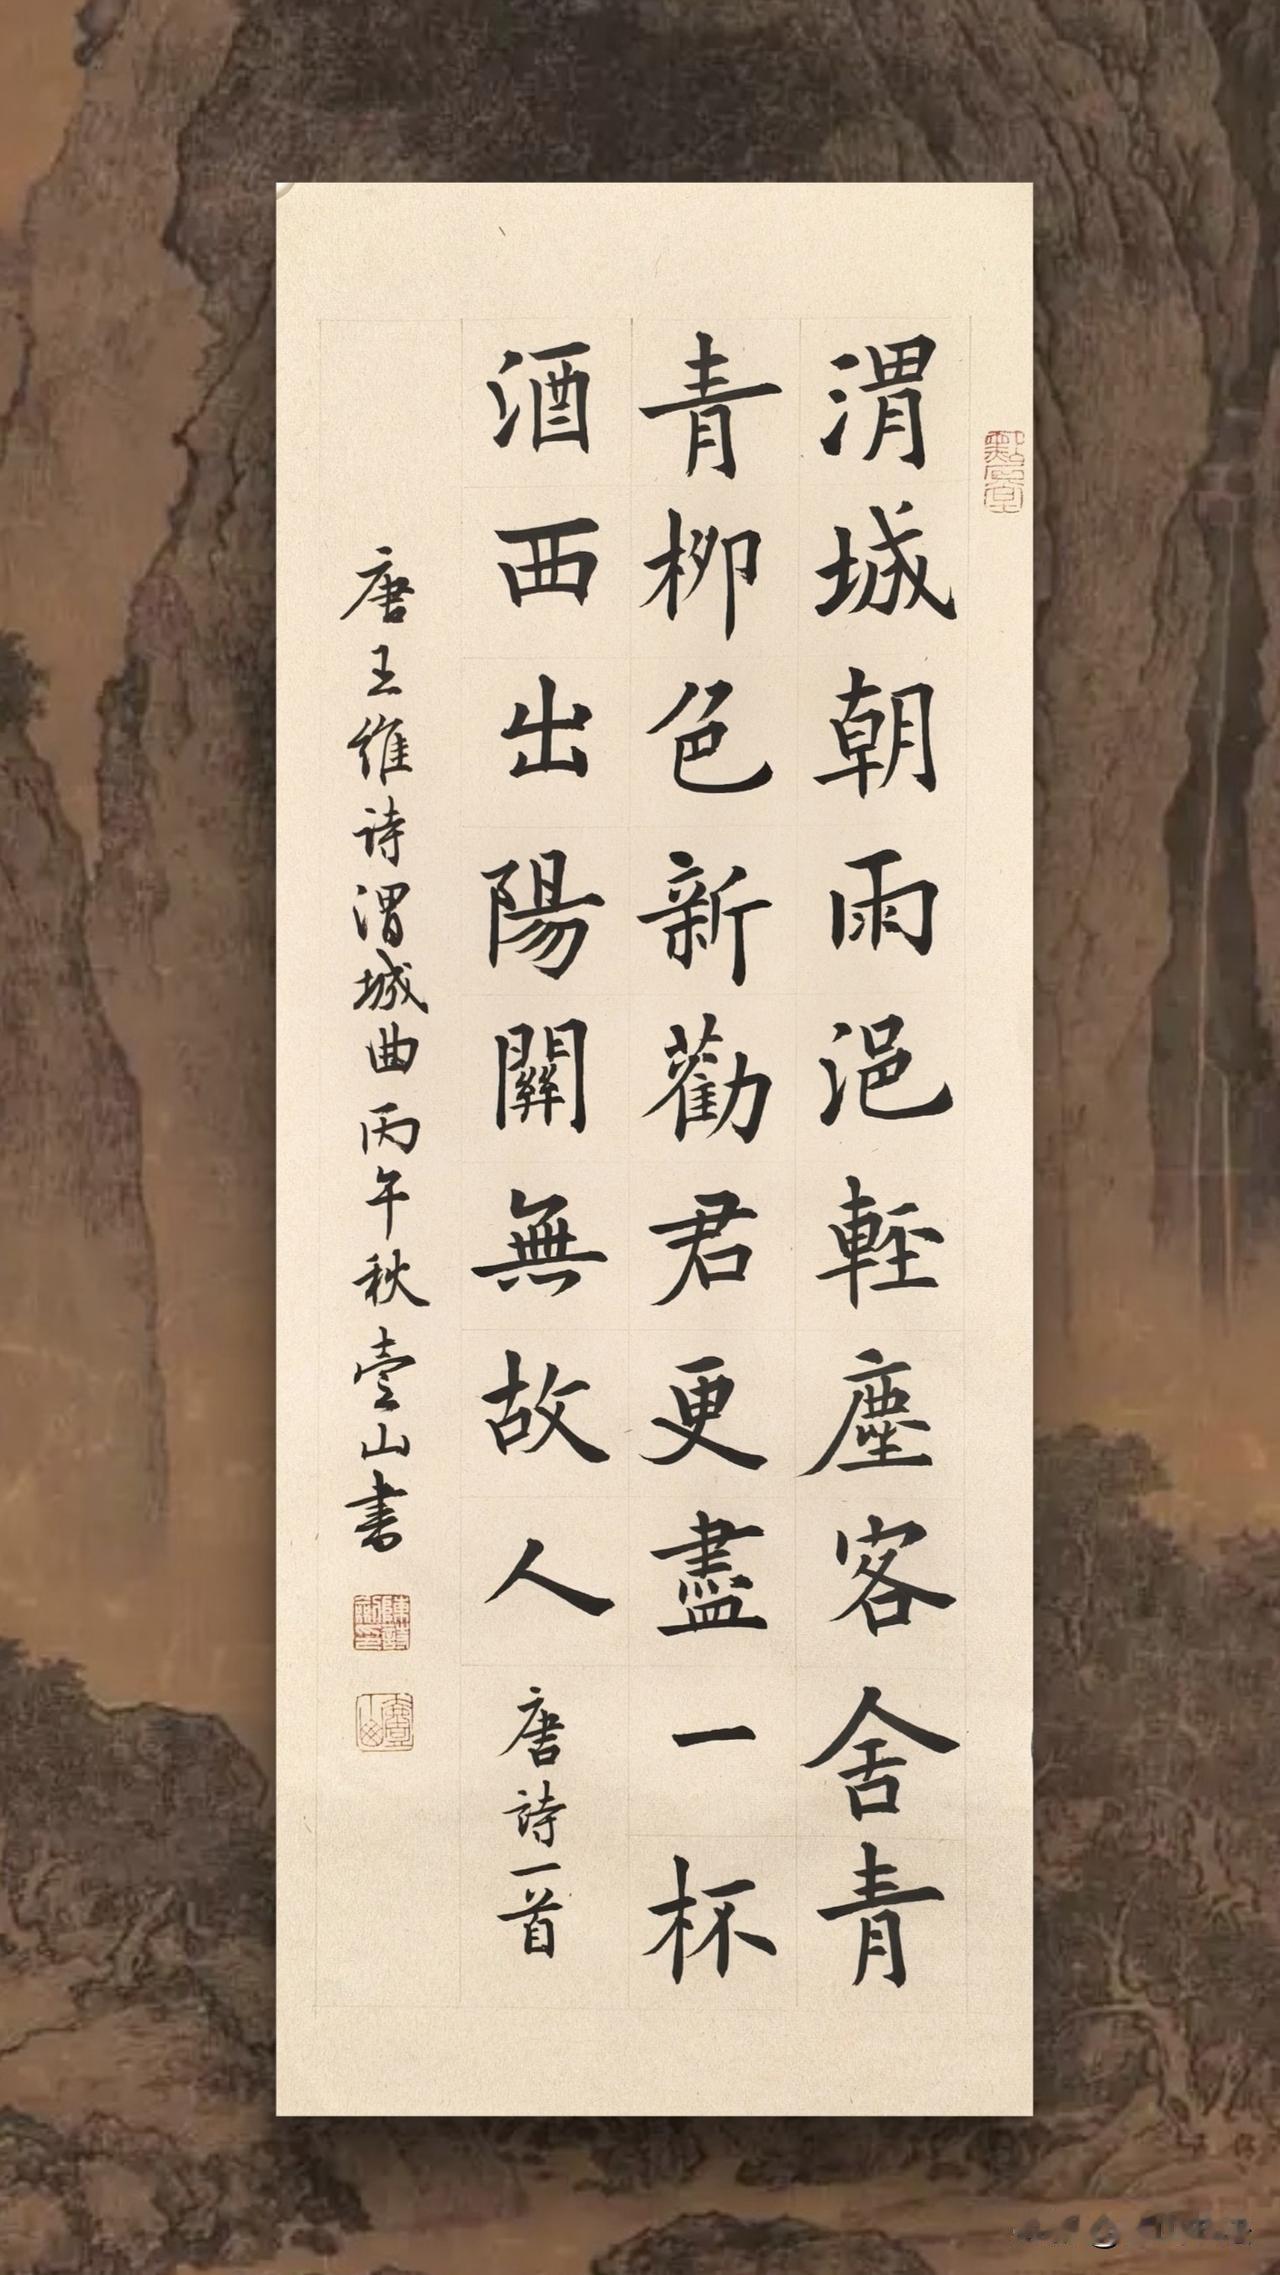 渭城朝雨浥輕塵客舍青
青柳色新勸君更盡一杯
酒西出陽關無故人唐詩一首
唐王维诗渭城曲丙午秋壹山书